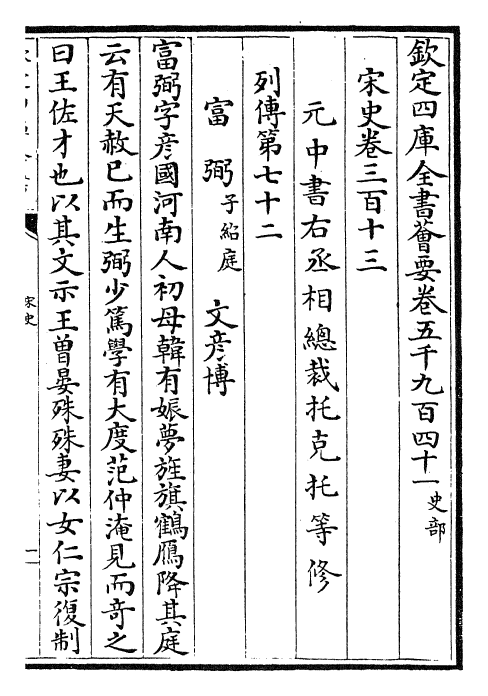 欽定四庫全書薈要卷五千九百四十一史部
宋史卷三百十三
元中書右丞相總裁托克托等修
列傳第七十二
富弼子紹庭 文彦博
富弼字彦國河南人初母韓有娠夢旌旗鶴鴈降其庭
云有天赦已而生弼少篤學有大度范仲淹見而竒之
曰王佐才也以其文示王曽晏殊殊妻以女仁宗復制
宋史
一